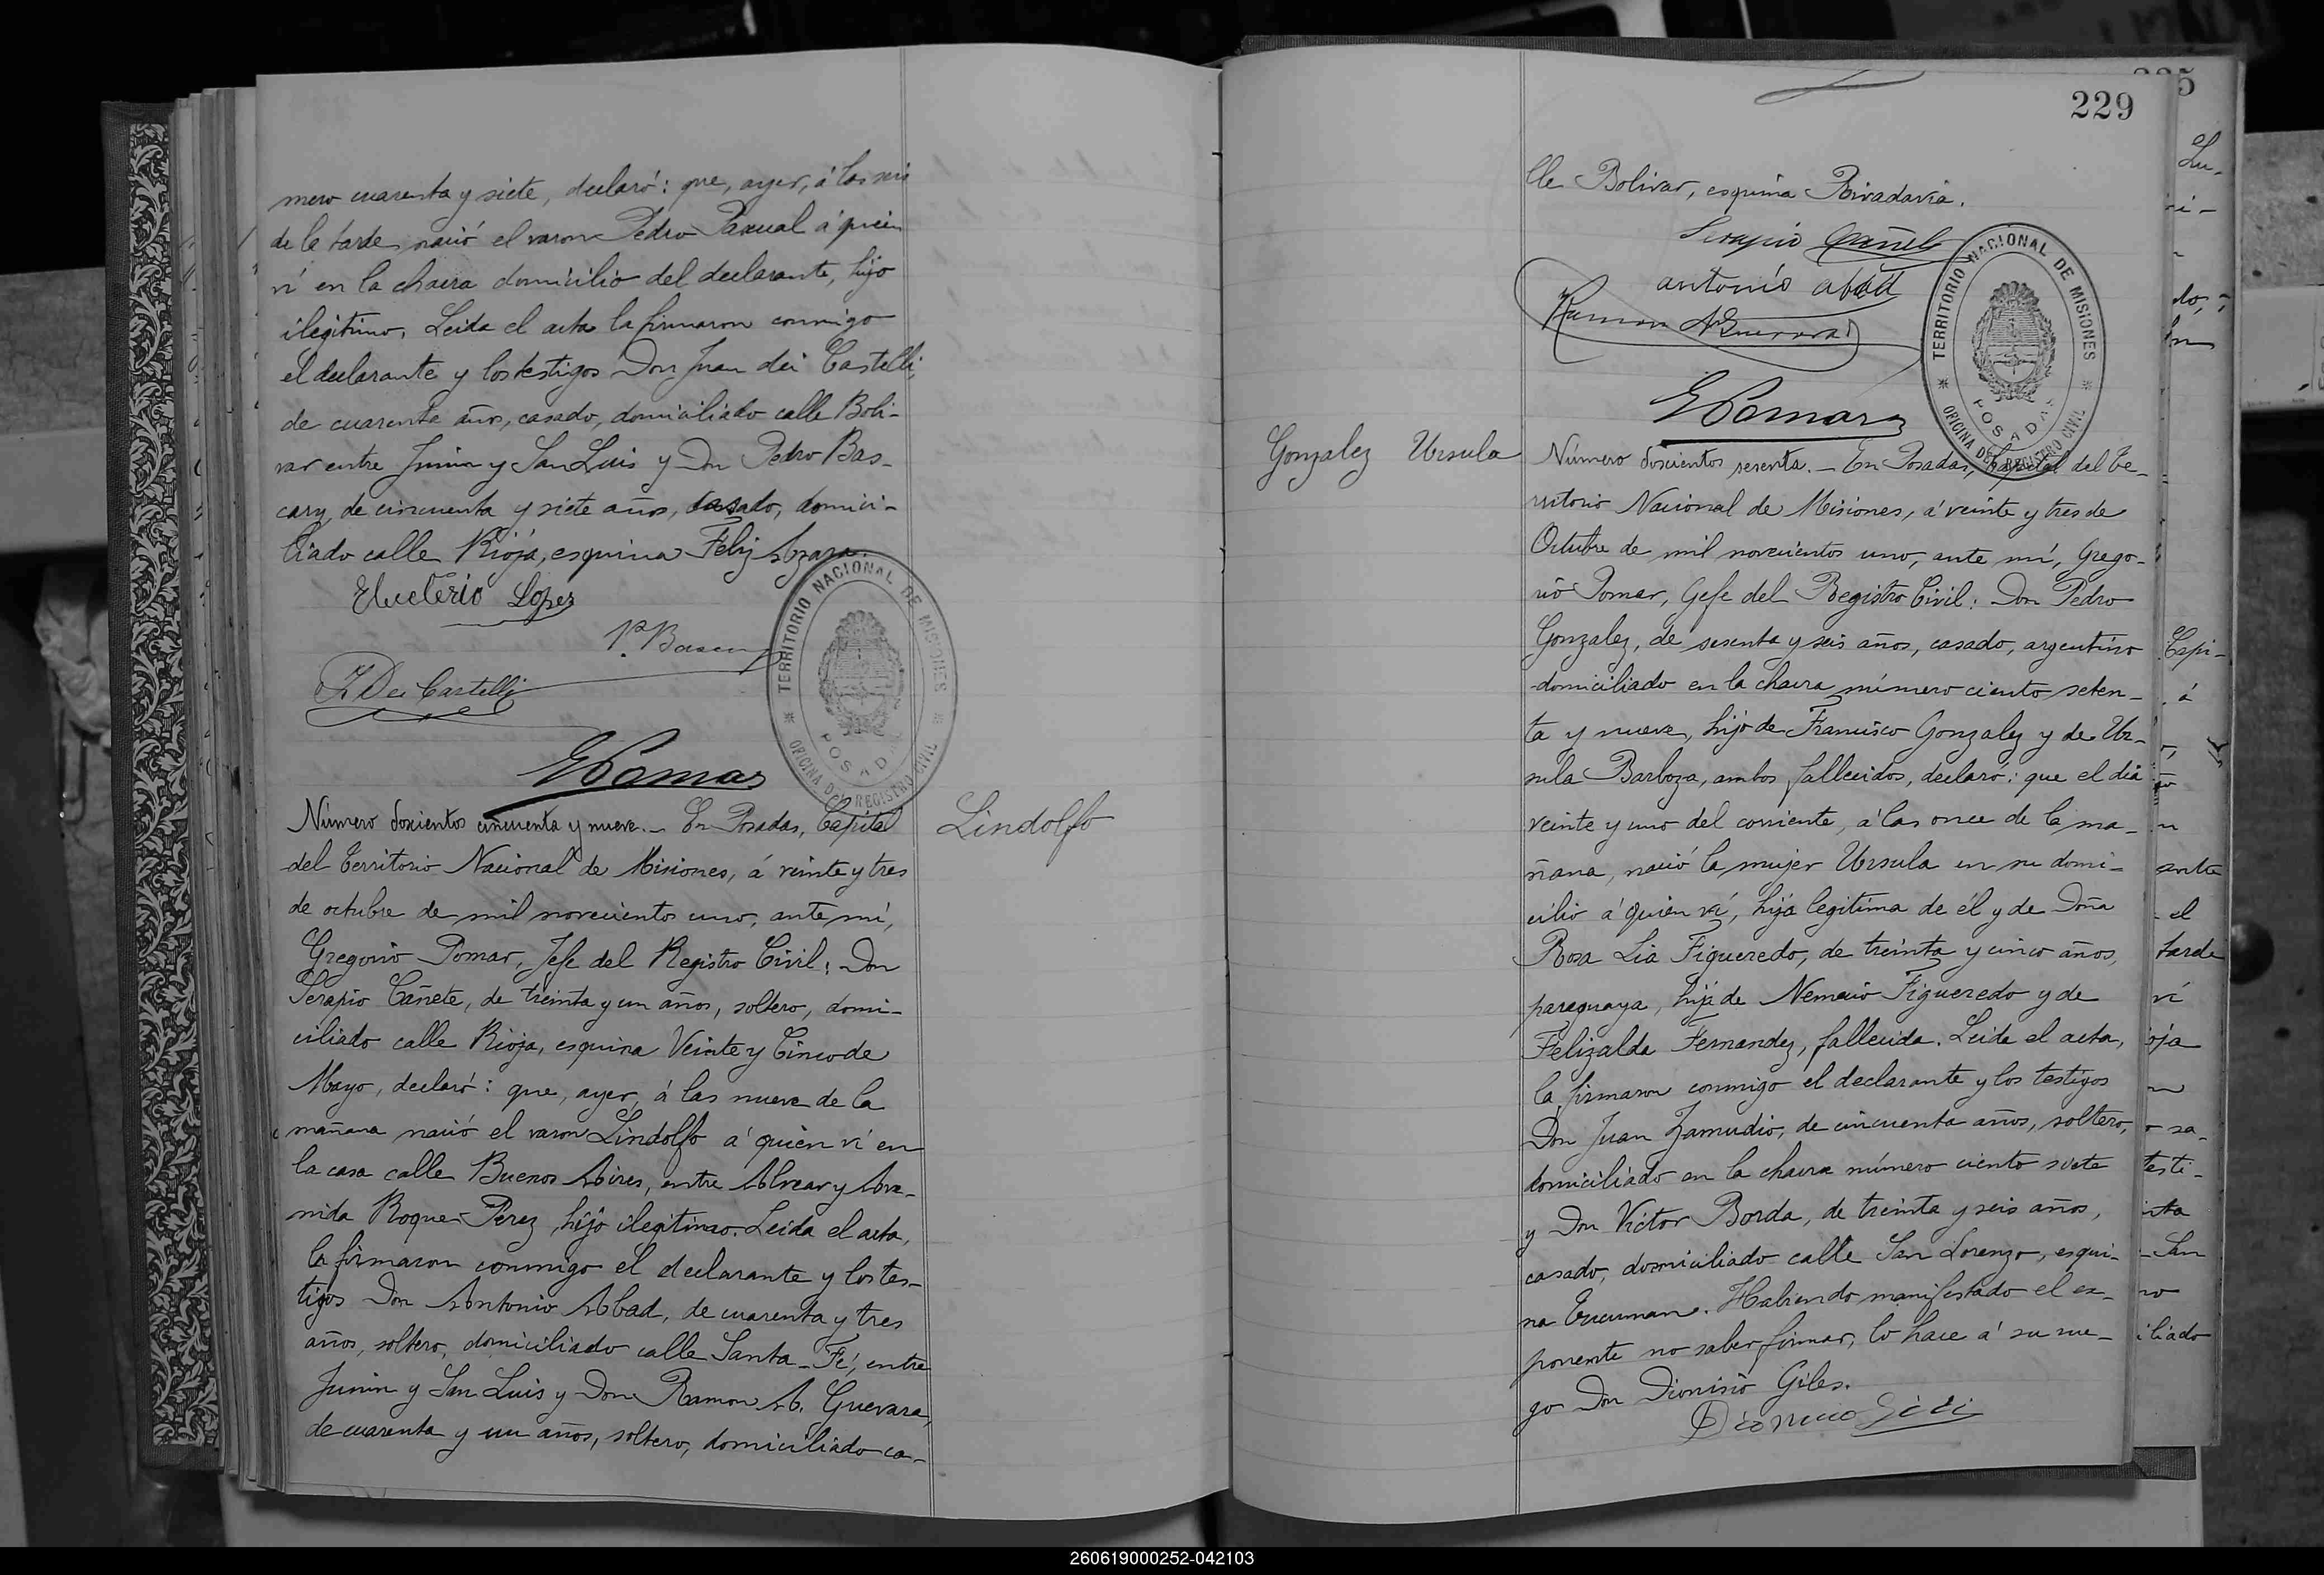 mero cuarenta y siete, declaró: que, ayer, á las seis
de la tarde nació el varon Pedro Pascual á quien
ví en la chacra domicilio del declarante, hijo
ilegitimo. Leida el acta la firmaron conmigo
el declarante y los testigos Don Juan dei Castelli,
de cuarenta años, casado, domiciliado calle Boli-
var entre Junin y San Luis y Don Pedro Bas-
cary, de cincuenta y siete años, casado, domici-
liado calle Rioja, esquina Feliz Azara.
Eleuterio Lopez
P. Bascary
J Dei Castelli
GPomar
Número doscientos cincuenta y nueve.- En Posadas, Capital
del Territorio Nacional de Misiones, á veinte y tres
de octubre de mil novecientos uno, ante mí,
Gregorio Pomar, Jefe del Registro Civil: Don
Serapio Cañete, de treinta y un años, soltero, domi-
ciliado calle Rioja, esquina Veinte y Cinco de
Mayo, declaró: que, ayer, á las nueve de la
mañana nació el varon Lindolfo á quien ví en
la casa calle Buenos Aires, entre Alvear y Ave-
nida Roque Perez, hijo ilegitimo. Leida el acta,
la firmaron conmigo el declarante y los tes-
tigos Don Antonio Abad, de cuarenta y tres
años, soltero, domiciliado calle Santa-Fé, entre
Junin y San Luis y Don Ramon A. Guevara,
de cuarenta y un años, soltero, domiciliado ca-
TERRITORIO NACIONAL DE MISIONES
POSADAS
OFICINA DEL REGISTRO CIVIL
Lindolfo
229
lle Bolivar, esquina Rivadavia.
Serapio Cañete
antonio abad
Ramon A Guevara
GPomar
TERRITORIO NACIONAL DE MISIONES
POSADAS
OFICINA DEL REGISTRO CIVIL
Gonzalez Ursula
Número doscientos sesenta.- En Posadas, Capital del Te-
rritorio Nacional de Misiones, á veinte y tres de
Octubre de mil novecientos uno, ante mí, Grego-
rio Pomar, Gefe del Registro Civil: Don Pedro
Gonzalez, de sesenta y seis años, casado, argentino
domiciliado en la chacra número ciento seten-
ta y nueve, hijo de Francisco Gonzalez y de Ur-
sula Barboza, ambos fallecidos, declaró: que el dia
veinte y uno del corriente, á las once de la ma-
ñana, nació la mujer Ursula en su domi-
cilio á quien ví, hija legitima de él y de Doña
Rosa Lia Figueredo, de treinta y cinco años,
paraguaya, hija de Nemecio Figueredo y de
Felizalda Fernandez, fallecida. Leida el acta,
la firmaron conmigo el declarante y los testigos
Don Juan Zamudio, de cincuenta años, soltero,
domiciliado en la chacra número ciento siete
y Don Victor Borda, de treinta y seis años,
casado, domiciliado calle San Lorenzo, esqui-
na Tucuman. Habiendo manifestado el ex-
ponente no saber firmar, lo hace á su rue-
go Don Dionisio Giles.
Dionicio
Lu-
Capi-
á
ante
el
tarde
ví
oja
sa-
testi-
San
no
iliado
260619000252-042103